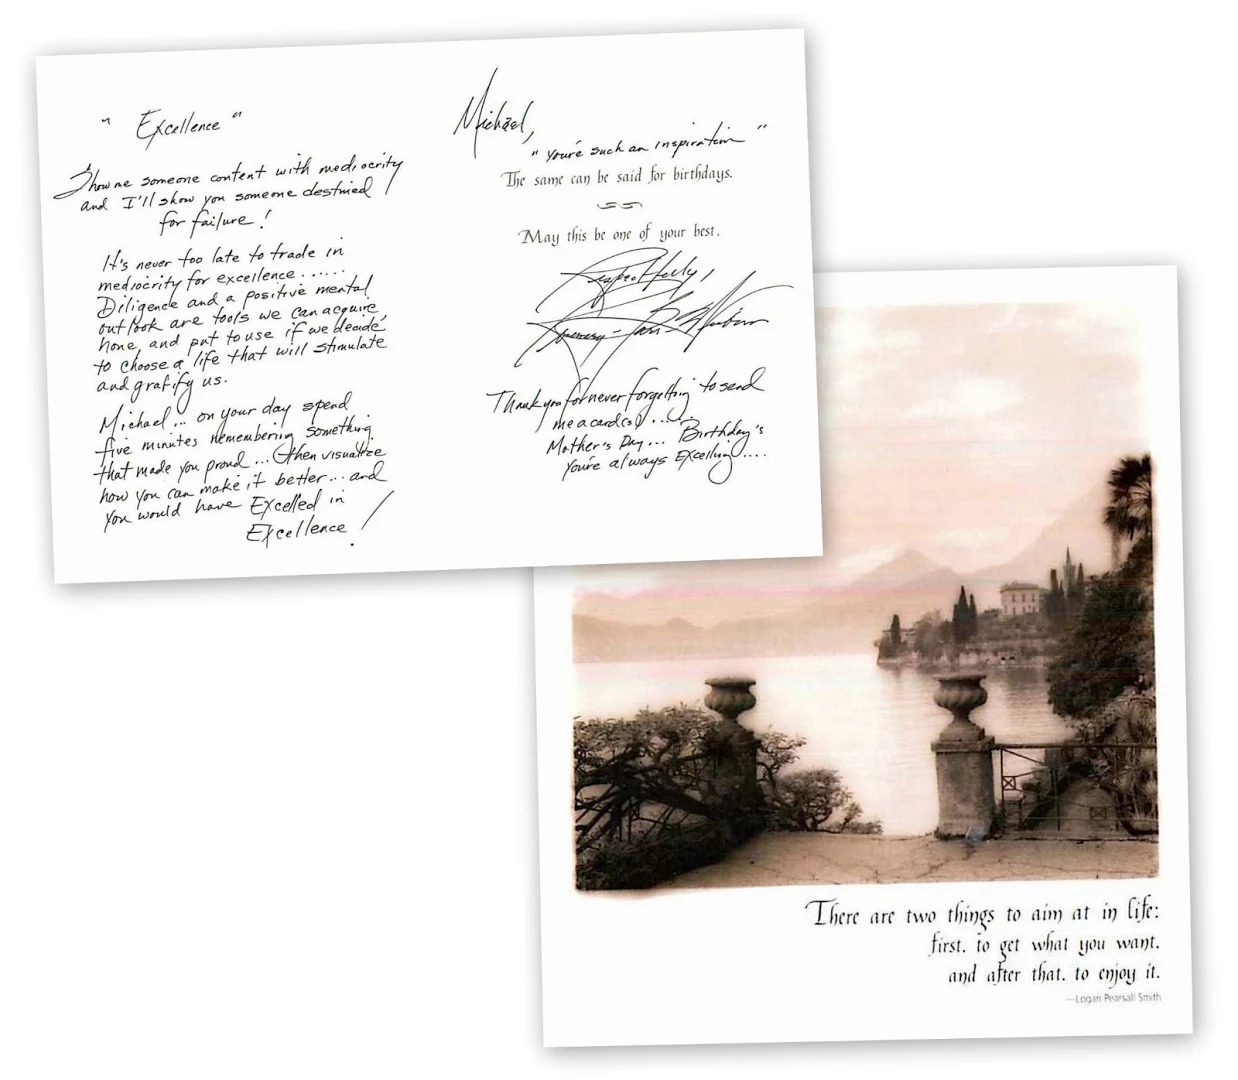 " Excellence "
Show me someone content with mediocrity
and I'll show you someone destined
for failure!
It's never too late to trade in
mediocrity for excellence......
Diligence and a positive mental
outlook are tools we can acquire,
hone, and put to use if we decide
to choose a life that will stimulate
and gratify us.
Michael... on your day spend
five minutes remembering something
that made you proud... then visualize
how you can make it better... and
you would have Excelled in
Excellence!
Michael,
"You're such an inspiration"
The same can be said for birthdays.
May this be one of your best.
Respectfully,
Thank you for never forgetting to send
me a card(s).....
Mother's Day... Birthday's
You're always Excelling....
There are two things to aim at in life:
first, to get what you want,
and after that, to enjoy it.
—Logan Pearsall Smith